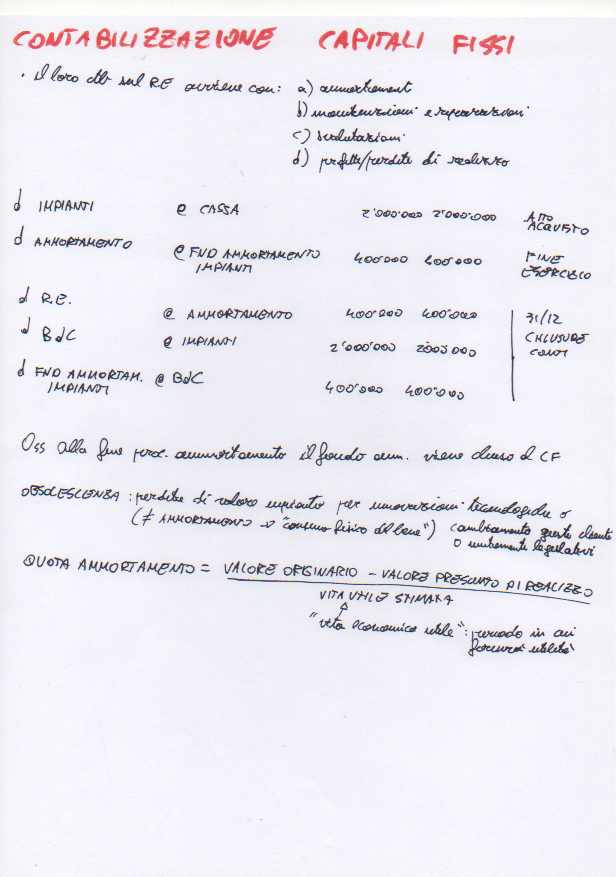 CONTABILIZZAZIONE CAPITALI FISSI
· il loro sul RE avviene con: a) ammortament
b) manutenzioni e riparazioni
c) svalutazioni
d) profitti/perdite di realizzo
d IMPIANTI @ CASSA 2'000'000 2'000'000 ATTO
ACQUISTO
d AMMORTAMENTO @ FND AMMORTAMENTO 400'000 400'000 FINE
IMPIANTI ESERCIZIO
d R.E. @ AMMORTAMENTO 400'000 400'000 31/12
d BdC @ IMPIANTI 2'000'000 2000000 CHIUSURE
CONTI
d FND AMMORTAM. @ BdC 400'000 400'000
IMPIANTI
Oss alla fine proc. ammortamento il fondo amm. viene chiuso al CF
OBSOLESCENZA: perdite di valore impianto per innovazioni tecnologiche o
(≠ AMMORTAMENTO → "consumo fisico del bene") cambiamento gusti clienti
o legislativi
QUOTA AMMORTAMENTO = VALORE ORIGINARIO - VALORE PRESUNTO DI REALIZZO
VITA UTILE STIMATA
"vita economica utile": periodo in cui
fornirà utilità